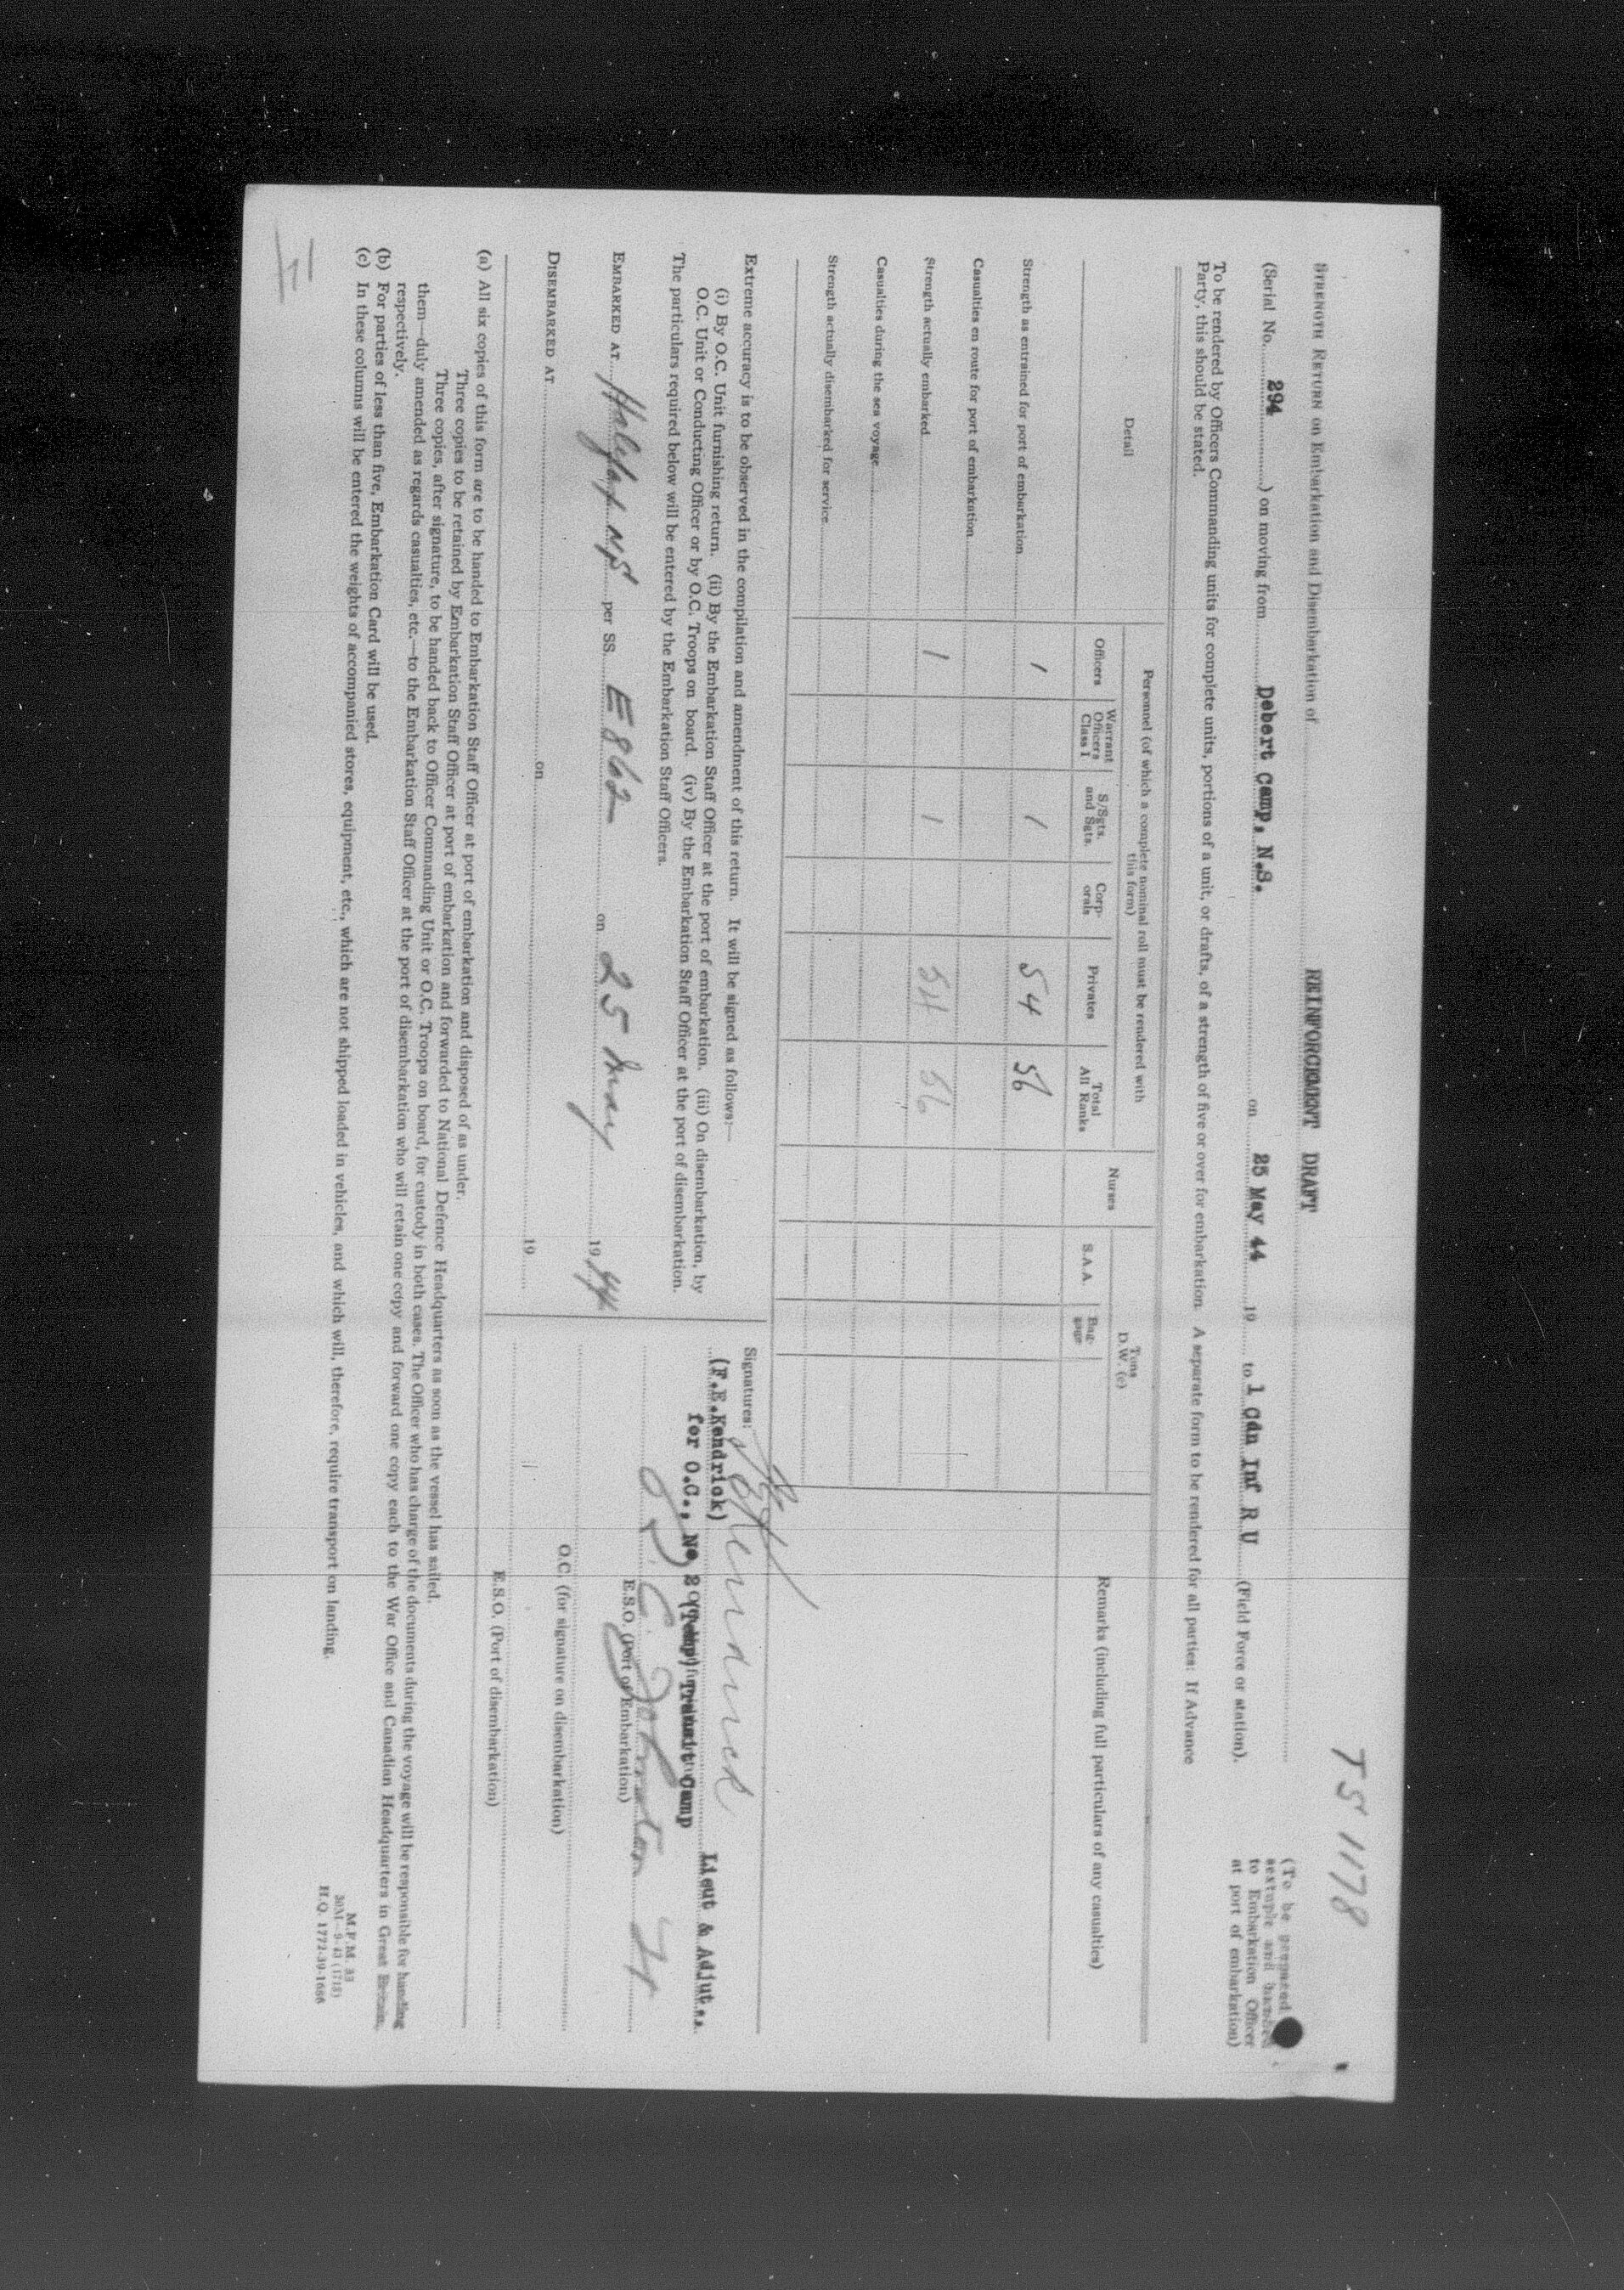 T S 1178
STRENGTH RETURN on Embarkation and Disembarkation of REINFORCEMENT DRAFT
(To be prepared sextuple and handed to Embarkation Officer at port of embarkation)
(Serial No. 294 ) on moving from Debert Camp, N.S. on 25 May 44 19 to 1 Cdn Inf R U (Field Force or station).
To be rendered by Officers Commanding units for complete units, portions of a unit, or drafts, of a strength of five or over for embarkation. A separate form to be rendered for all parties: If Advance
Party, this should be stated.
Detail
Personnel (of which a complete nominal roll must be rendered with this form)
Officers
Warrant Officers Class I
S/Sgts. and Sgts.
Corp-orals
Privates
Total All Ranks
Nurses
Tons D.W. (c)
S.A.A.
Bag-gage
Remarks (including full particulars of any casualties)
Strength as entrained for port of embarkation 1 1 54 56
Casualties en route for port of embarkation
Strength actually embarked 1 1 54 56
Casualties during the sea voyage
Strength actually disembarked for service
Extreme accuracy is to be observed in the compilation and amendment of this return. It will be signed as follows:—
(i) By O.C. Unit furnishing return. (ii) By the Embarkation Staff Officer at the port of embarkation. (iii) On disembarkation, by
O.C. Unit or Conducting Officer or by O.C. Troops on board. (iv) By the Embarkation Staff Officer at the port of disembarkation.
The particulars required below will be entered by the Embarkation Staff Officers.
EMBARKED AT Halifax NS per SS. E862 on 25 May 1944
DISEMBARKED AT on 19
Signatures:
(F.E.Kendrick) Lieut & Adjut
for O.C., No 2 (Temp) Transit Camp
E.S.O. (Port of Embarkation)
O.C. (for signature on disembarkation)
E.S.O. (Port of disembarkation)
(a) All six copies of this form are to be handed to Embarkation Staff Officer at port of embarkation and disposed of as under.
Three copies to be retained by Embarkation Staff Officer at port of embarkation and forwarded to National Defence Headquarters as soon as the vessel has sailed.
Three copies, after signature, to be handed back to Officer Commanding Unit or O.C. Troops on board, for custody in both cases. The Officer who has charge of the documents during the voyage will be responsible for handing
them—duly amended as regards casualties, etc.—to the Embarkation Staff Officer at the port of disembarkation who will retain one copy and forward one copy each to the War Office and Canadian Headquarters in Great Britain,
respectively.
(b) For parties of less than five, Embarkation Card will be used.
(c) In these columns will be entered the weights of accompanied stores, equipment, etc., which are not shipped loaded in vehicles, and which will, therefore, require transport on landing.
M.F.M. 33
30M—9-43 (1718)
H.Q. 1772-39-1686